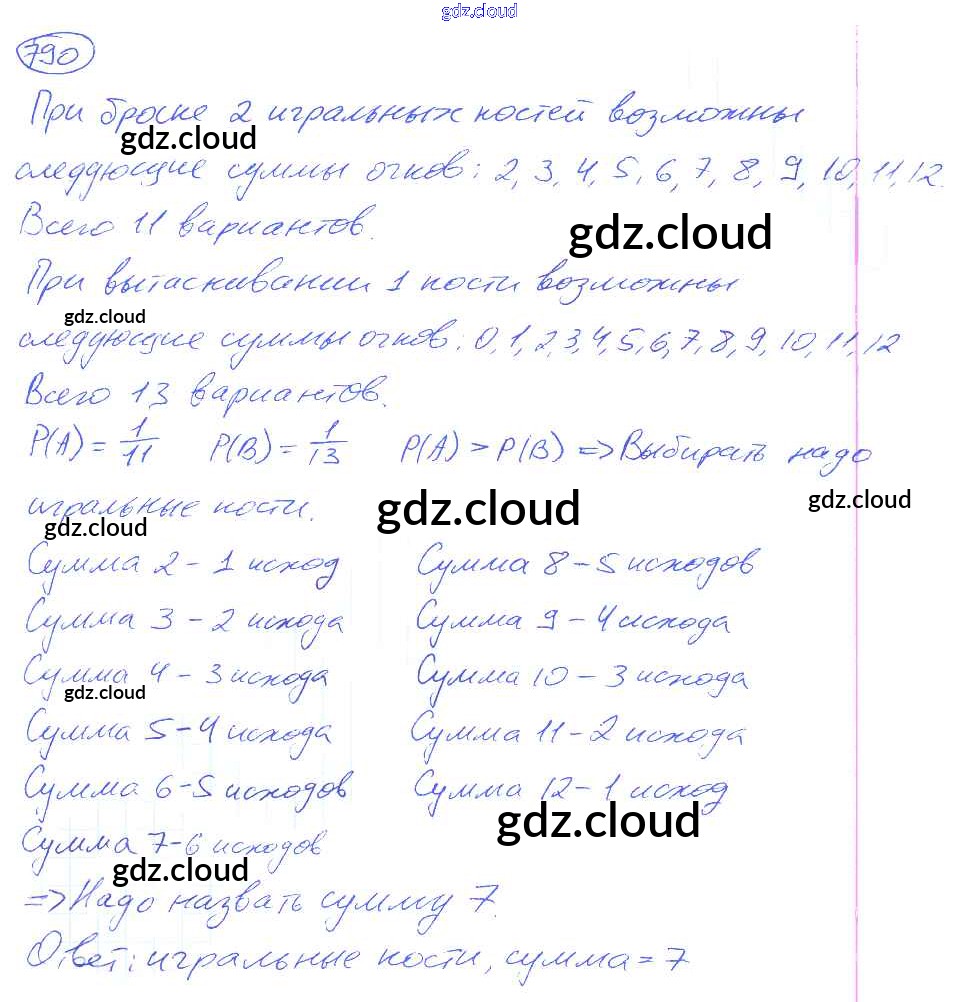 gdz.cloud
790
При броске 2 игральных костей возможны
gdz.cloud
следующие суммы очков: 2, 3, 4, 5, 6, 7, 8, 9, 10, 11, 12.
Всего 11 вариантов.
gdz.cloud
При вытаскивании 1 кости возможны
gdz.cloud
следующие суммы очков: 0, 1, 2, 3, 4, 5, 6, 7, 8, 9, 10, 11, 12
Всего 13 вариантов.
P(A) = 1/11 P(B) = 1/13 P(A) > P(B) => Выбирать надо
игральные кости.
gdz.cloud gdz.cloud gdz.cloud
Сумма 2 - 1 исход Сумма 8 - 5 исходов
Сумма 3 - 2 исхода Сумма 9 - 4 исхода
Сумма 4 - 3 исхода Сумма 10 - 3 исхода
gdz.cloud
Сумма 5 - 4 исхода Сумма 11 - 2 исхода
Сумма 6 - 5 исходов Сумма 12 - 1 исход
gdz.cloud
Сумма 7 - 6 исходов
gdz.cloud
=> Надо назвать сумму 7.
Ответ: игральные кости, сумма = 7